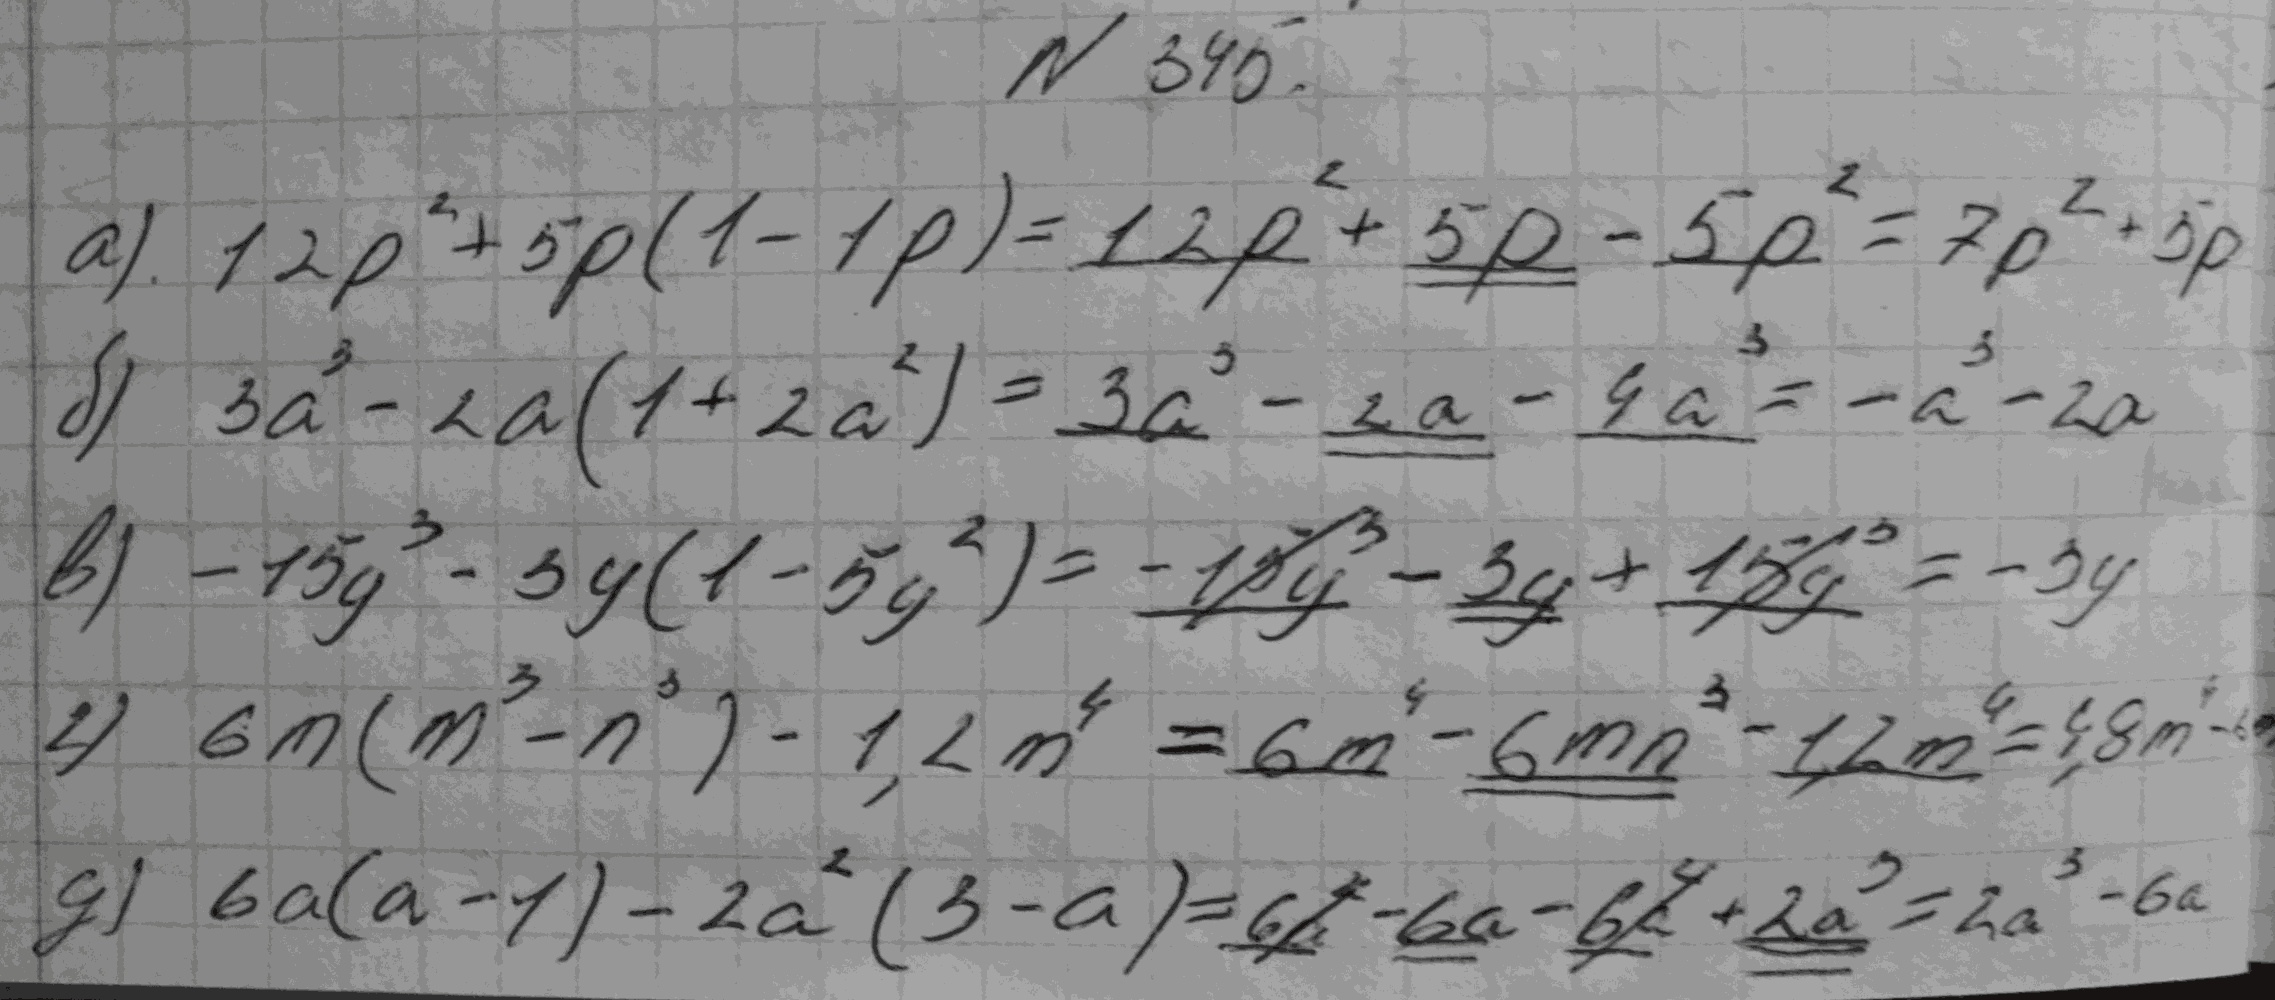 N 345.
а). 12p² + 5p(1 - 1p) = 12p² + 5p - 5p² = 7p² + 5p
б) 3a³ - 2a(1 + 2a²) = 3a³ - 2a - 4a³ = -a³ - 2a
в) -15y³ - 3y(1 - 5y²) = -15y³ - 3y + 15y³ = -3y
г) 6m(m³ - n³) - 1,2m⁴ = 6m⁴ - 6mn³ - 1,2m⁴ = 4,8m⁴ - 6m
д) 6a(a - 1) - 2a²(3 - a) = 6a² - 6a - 6a² + 2a³ = 2a³ - 6a